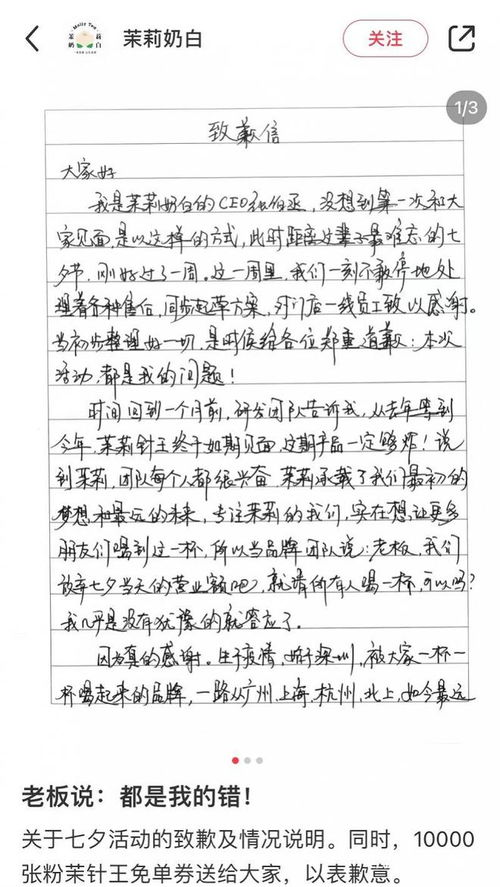 茉莉奶白
Molly Tea
茉莉奶白
关注
1/3
致歉信
大家好
我是茉莉奶白的CEO张伯丞，没想到第一次和大
家见面，是以这样的方式，此时距离这辈子最难忘的七
夕节，刚好过了一周。这一周里，我们一刻不敢停地处
理着各种售后，同步起草方案，对门店一线员工致以感谢。
当初步整理好一切，是时候给各位郑重道歉：本次
活动，都是我的问题！
时间回到一个月前，研发团队告诉我，从去年等到
今年，茉莉针王终于如期见面，这期产品一定够炸！说
到茉莉，团队每个人都很兴奋，茉莉承载了我们最初的
梦想和最远的未来，专注茉莉的我们，实在想让更多
朋友们喝到这一杯，所以当品牌团队说：老板，我们
放弃七夕当天的营业额吧，就请所有人喝一杯，可以吗？
我几乎是没有犹豫的就答应了。
因为真的感谢。生于疫情，始于深圳，被大家一杯一
杯喝起来的品牌，一路从广州、上海、杭州、北上，如今最远
老板说：都是我的错！
关于七夕活动的致歉及情况说明。同时，10000
张粉茉针王免单券送给大家，以表歉意。